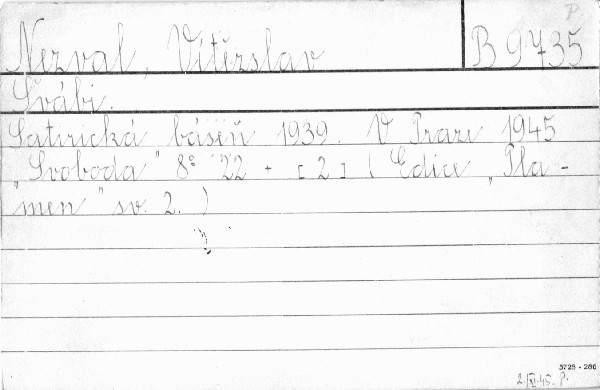 P
Nezval, Vítězslav B 9735
Švábi.
Satirická báseň 1939. V Praze 1945
„Svoboda" 8° 22 + [2] (Edice „Pla-
men" sv. 2.)
5728 - 286
2/XI.45. P.